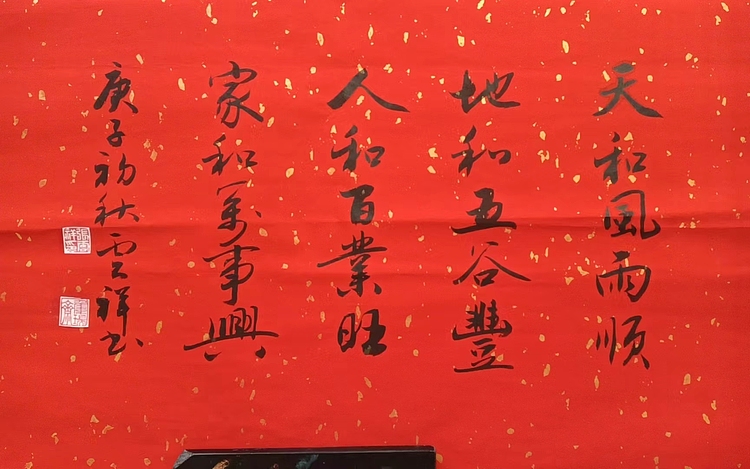 天和風雨順
地和五谷豐
人和百業旺
家和萬事興
庚子初秋雲祥书